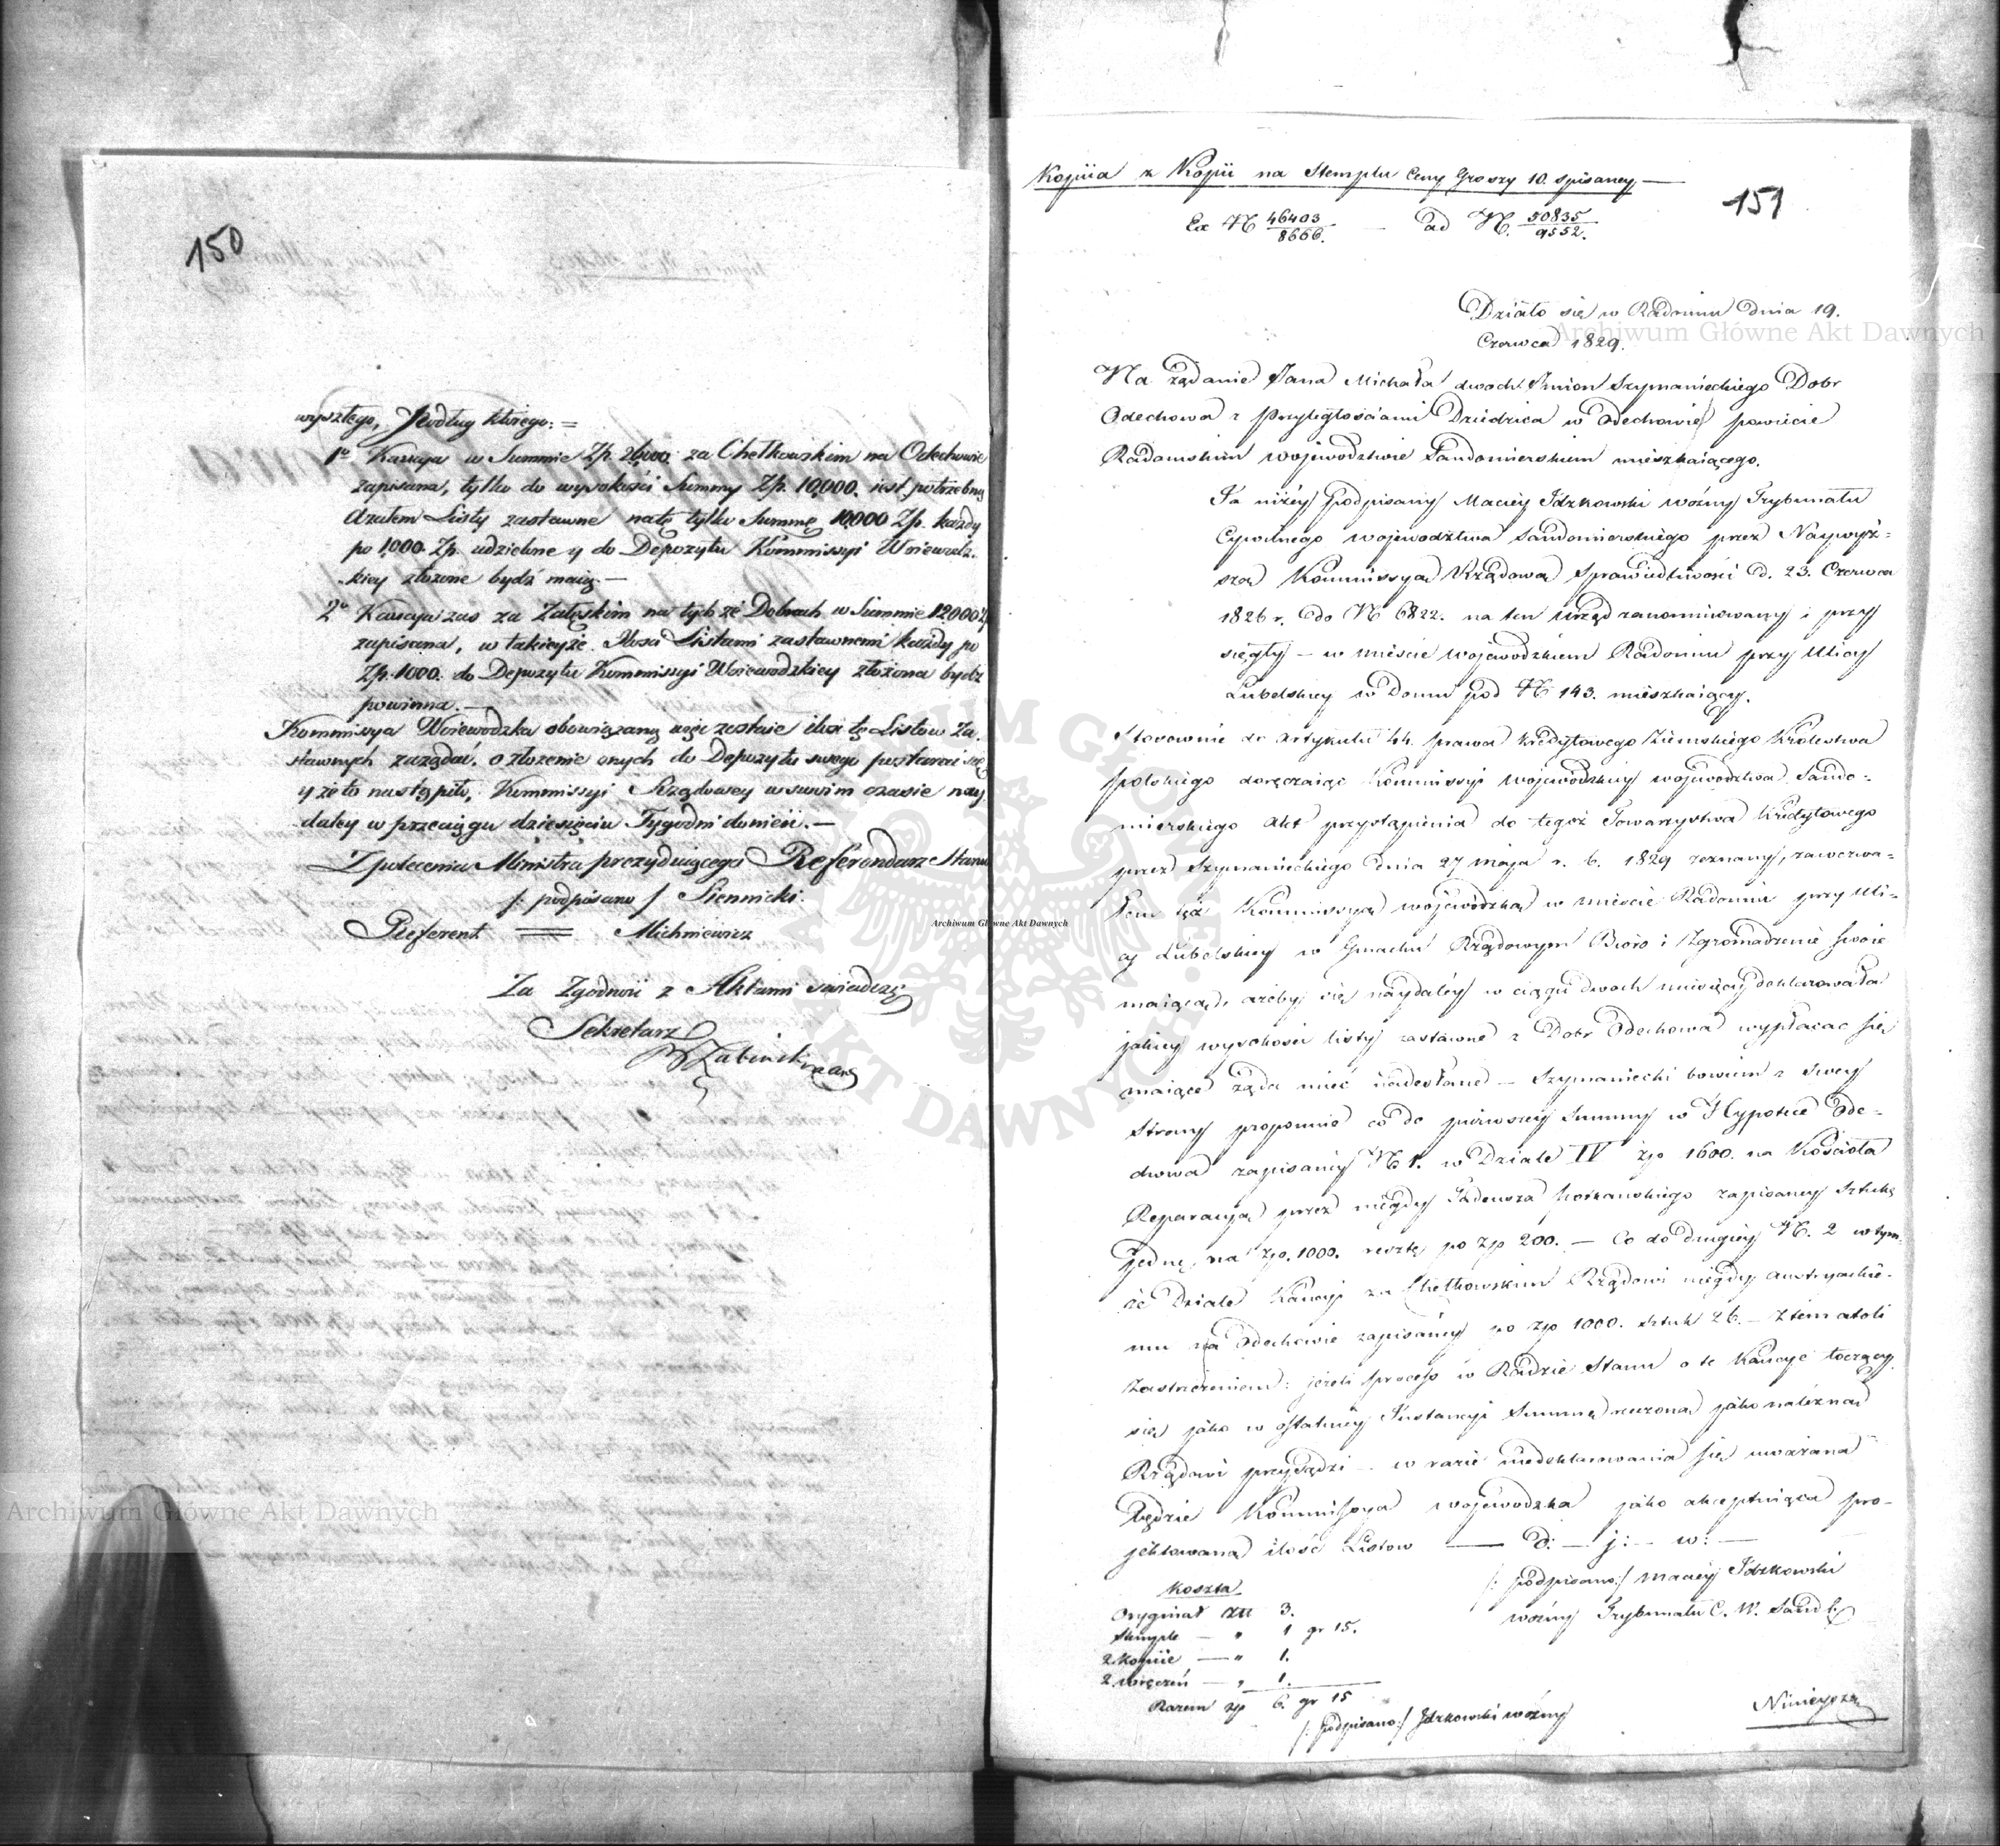 150
wyszłego, Podług którego: =
1o Kaucya w Summie Zp. 26000 za Chełkowskim na Odechowie
zapisana, tylko do wysokości Summy Zp. 10,000. iest potrzebną
Azatem Listy zastawne na tę tylko Summę 10,000 Zp. każdy
po 1,000 Zp. udzielone y do Depozytu Kommissyi Woiewodz-
kiey złożone bydź maią. —
2o Kaucya zaś za Załęskim na tychże Dobrach w Summie 12000
zapisana, w takieyże Ilości Listami zastawnemi każdy po
Zp. 1000. do Depozytu Kommissyi Woiewodzkiey złożona bydź
powinna. —
Kommissya Woiewodzka obowiązaną więc zostaie ilość tę Listów Za-
stawnych zażądać, o złożenie onych do Depozytu swego postarać się
y że to nastąpiło, Kommissyi Rządowey w swoim czasie nay
daley w przeciągu dziesięciu Tygodni donieść. —
Z polecenia Ministra prezyduiącego Referendarz Stanu
/: podpisano / Siennicki.
Referent = Michniewicz
Za Zgodność z Aktami świadczę
Sekretarz
Kopiia z Kopii na Stemplu Ceny Groszy 10. spisaney —
151
Ex N 46403/8666. — ad N. 50835/9552.
Działo się w Radomiu dnia 19.
Czerwca 1829.
Na żądanie Pana Michała dwoch Imion Szymanieckiego Dobr
Odechowa z Przyległościami Dziedzica w Odechowie powiecie
Radomskim wojewodztwie Sandomierskiem mieszkaiącego.
Ja niżey podpisany Maciey Idzkowski woźny Trybunału
Cywilnego wojewodztwa Sandomierskiego przez Naywyż-
szą Kommissyą Rządową Sprawiedliwości d. 23. Czerwca
1826 r. do N 6822. na ten urząd zanominowany i przy
sięgły — w mieście wojewodzkiem Radomiu przy Ulicy
Lubelskiey w Domu pod N 143. mieszkaiący.
Stosownie do Artykułu 44. prawa kredytowego Ziemskiego Królestwa
polskiego doręczaiąc Kommissyi wojewodzkiey wojewodztwa Sando-
mierskiego Akt przystąpienia do tegoż Towarzystwa Kredytowego
przez Szymanieckiego dnia 27 maja r. b. 1829 zeznany, zawezwa-
łem też Kommissyą wojewodzką w mieście Radomiu przy Uli-
cy Lubelskiey w Gmachu Rządowym Bióro i Zgromadzenie swoie
maiącą, ażeby się naydaley w ciągu dwoch miesięcy deklarowała
jakiey wysokości listy zastawne z Dobr Odechowa wypłacać się
maiące żąda mieć nadesłane — Szymaniecki bowiem z swey
Strony proponuie co do pierwszey Summy w Hypotece Ode-
chowa zapisaney N 1. w Dziale IV zp 1600. na Kościoła
Reperacyą przez niegdy Tadeusza zapisaney Sztukę
Jednę na zp. 1000. resztę po zp 200. — Co do drugiey N. 2 w tym-
że Dziale Kaucyi za Chełkowskim Rządowi niegdy austryackie-
mu na Odechowie zapisaney po zp 1000. sztuk 26. — Ztem atoli
Zastrzeżeniem: jeżeli proces w Radzie Stanu o te Kaucyę toczący
się jako w ostatniey Instancyi Summę rzeczoną jako należną
Rządowi przysądzi — w razie niedeklarowania się uważana
będzie Kommissya wojewodzka jako akceptuiąca pro-
jektowaną ilość Listow — d: — j: — w: —
/: podpisano:/ Maciey Idzkowski
woźny Trybunału C. W. Sand
Koszta
Oryginał złł 3.
Stemple — " 1 gr 15.
2. kopiie — " 1.
2. wręczeń — " 1.
Razem zp 6. gr 15
/: podpisano:/ Idzkowski woźny
Archiwum Główne Akt Dawnych
Archiwum Główne Akt Dawnych
Archiwum Główne Akt Dawnych
ARCHIWUM GŁÓWNE AKT DAWNYCH